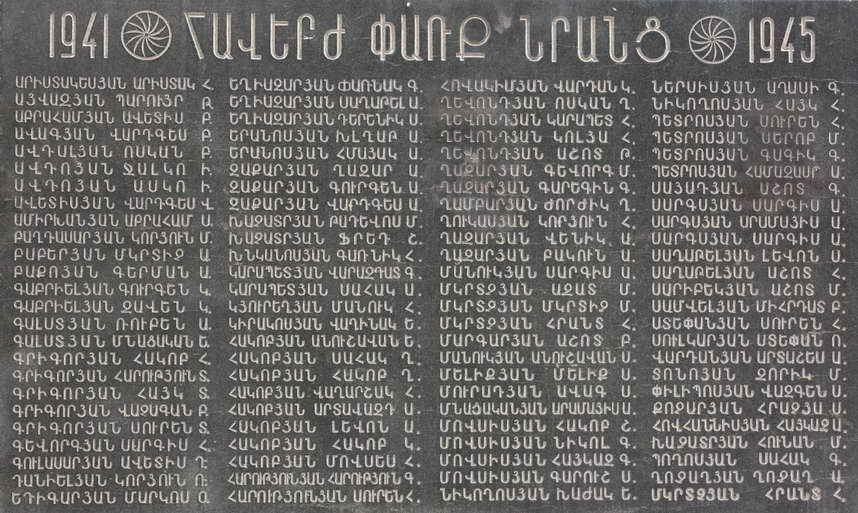 1941 ՀԱՎԵՐԺ ՓԱՌՔ ՆՐԱՆՑ 1945
ԱՐԻՍՏԱԿԵՍՅԱՆ ԱՐԻՍՏԱԿ Հ.
ԱՅՎԱԶՅԱՆ ՊԱՐՈՒՅՐ Թ.
ԱԲՐԱՀԱՄՅԱՆ ԱՎԵՏԻՍ Բ.
ԱՎԱԳՅԱՆ ՎԱՐԴԳԵՍ Բ.
ԱՎԴԱԼՅԱՆ ՈՍԿԱՆ Բ.
ԱՎԴՈՅԱՆ ՋԱԼԿՈ Ի.
ԱՎԴՈՅԱՆ ԱՍԿՈ Ի.
ԱՎԵՏԻՍՅԱՆ ՎԱՐԴԳԵՍ Վ.
ԱՄԻՐԽԱՆՅԱՆ ԱԲՐԱՀԱՄ Ա.
ԲԱՂԴԱՍԱՐՅԱՆ ԿՈՐՅՈՒՆ Մ.
ԲԱԲԵՐՅԱՆ ՄԿՐՏԻՉ Ա.
ԲԱՔՈՅԱՆ ԳԵՐՄԱՆ Ա.
ԳԱԲՐԻԵԼՅԱՆ ԳՈՒՐԳԵՆ Կ.
ԳԱԲՐԻԵԼՅԱՆ ԶԱՎԵՆ Կ.
ԳԱԼՍՏՅԱՆ ՌՈՒԲԵՆ Ա.
ԳԱԼՍՏՅԱՆ ՄՆԱՑԱԿԱՆ Ե.
ԳՐԻԳՈՐՅԱՆ ՀԱԿՈԲ Հ.
ԳՐԻԳՈՐՅԱՆ ՀԱՐՈՒԹՅՈՒՆ Տ.
ԳՐԻԳՈՐՅԱՆ ՀԱՅԿ Տ.
ԳՐԻԳՈՐՅԱՆ ՎԱՉԱԳԱՆ Բ.
ԳՐԻԳՈՐՅԱՆ ՍՈՒՐԵՆ Տ.
ԳԵՎՈՐԳՅԱՆ ՍԱՐԳԻՍ Հ.
ԳՈՒԼԱՍԱՐՅԱՆ ԱՎԵՏԻՍ Դ.
ԴԱՆԻԵԼՅԱՆ ԿՈՐՅՈՒՆ Ռ.
ԵԴԻԳԱՐՅԱՆ ՄԱՐԿՈՍ Ա.
ԵՂԻԱԶԱՐՅԱՆ ՓԱՌՆԱԿ Գ.
ԵՂԻԱԶԱՐՅԱՆ ՍԱՂԱԹԵԼ Ա.
ԵՂԻԱԶԱՐՅԱՆ ԴԵՐԵՆԻԿ Ս.
ԵՐԱՆՈՍՅԱՆ ԽԼՂԱԹ Ա.
ԵՐԱՆՈՍՅԱՆ ՀՄԱՅԱԿ Ա.
ԶԱՔԱՐՅԱՆ ՂԱԶԱՐ Ա.
ԶԱՔԱՐՅԱՆ ԳՈՒՐԳԵՆ Ա.
ԶԱՔԱՐՅԱՆ ՎԱՐԴԳԵՍ Ա.
ԽԱՉԱՏՐՅԱՆ ԹԱԴԵՎՈՍ Մ.
ԽԱՉԱՏՐՅԱՆ ՖՐԵԴ Շ.
ԽՆԿԱՆՈՍՅԱՆ ԳԱՌՆԻԿ Հ.
ԿԱՐԱՊԵՏՅԱՆ ՎԱՐԱԶԴԱՏ Գ.
ԿԱՐԱՊԵՏՅԱՆ ՍԱՀԱԿ Ա.
ԿՅՈՒՐԵՂՅԱՆ ՄԱՆՈՒԿ Հ.
ԿԻՐԱԿՈՍՅԱՆ ՎԱՂԻՆԱԿ Ե.
ՀԱԿՈԲՅԱՆ ԱՆՈՒՇԱՎԱՆ Ե.
ՀԱԿՈԲՅԱՆ ՍԱՀԱԿ Ղ.
ՀԱԿՈԲՅԱՆ ՀԱԿՈԲ Ղ.
ՀԱԿՈԲՅԱՆ ՎԱՂԱՐՇԱԿ Հ.
ՀԱԿՈԲՅԱՆ ԱՐՏԱՎԱԶԴ Ս.
ՀԱԿՈԲՅԱՆ ԼԵՎՈՆ Ա.
ՀԱԿՈԲՅԱՆ ՀԱԿՈԲ Կ.
ՀԱԿՈԲՅԱՆ ՄՈՎՍԵՍ Հ.
ՀԱՐՈՒԹՅՈՒՆՅԱՆ ՀԱՐՈՒԹՅՈՒՆ Գ.
ՀԱՐՈՒԹՅՈՒՆՅԱՆ ՍՈՒՐԵՆ Հ.
ՀՈՎԱԿԻՄՅԱՆ ՎԱՐԴԱՆ Կ.
ՂԵՎՈՆԴՅԱՆ ՈՍԿԱՆ Ղ.
ՂԵՎՈՆԴՅԱՆ ԿԱՐԱՊԵՏ Հ.
ՂԵՎՈՆԴՅԱՆ ԿՈԼՅԱ Հ.
ՂԵՎՈՆԴՅԱՆ ԱՇՈՏ Թ.
ՂԱԶԱՐՅԱՆ ԳԵՎՈՐԳ Մ.
ՂԱԶԱՐՅԱՆ ԳԱՐԵԳԻՆ Գ.
ՂԱՄԲԱՐՅԱՆ ԺՈՐԺԻԿ Ղ.
ՂՈՒԿԱՍՅԱՆ ԿՈՐՅՈՒՆ Հ.
ՂԱԶԱՐՅԱՆ ՎԵՆԻԿ Ա.
ՂԱԶԱՐՅԱՆ ԲԱԿՈՒՆ Ա.
ՄԱՆՈՒԿՅԱՆ ՍԱՐԳԻՍ Ա.
ՄԿՐՏՉՅԱՆ ԱԶԱՏ Մ.
ՄԿՐՏՉՅԱՆ ՄԿՐՏԻՉ Մ.
ՄԿՐՏՉՅԱՆ ՀՐԱՆՏ Հ.
ՄԱՐԳԱՐՅԱՆ ԱՇՈՏ Բ.
ՄԱՆՈՒԿՅԱՆ ԱՆՈՒՇԱՎԱՆ Ս.
ՄԵԼԻՔՅԱՆ ՄԵԼԻՔ Ս.
ՄՈՒՐԱԴՅԱՆ ԱՎԱԳ Ս.
ՄՆԱՑԱԿԱՆՅԱՆ ԱՐԱՄԱՅԻՍ Ա.
ՄՈՎՍԻՍՅԱՆ ՀԱԿՈԲ Շ.
ՄՈՎՍԻՍՅԱՆ ՆԻԿՈԼ Գ.
ՄՈՎՍԻՍՅԱՆ ՀԱՅԿԱԶ Գ.
ՄՈՎՍԻՍՅԱՆ ԳԱՐՈՒՇ Ս.
ՆԻԿՈՂՈՍՅԱՆ ԽԱԺԱԿ Ե.
ՆԵՐՍԻՍՅԱՆ ԱՂԱՍԻ Գ.
ՆԻԿՈՂՈՍՅԱՆ ՀԱՅԿ Հ.
ՊԵՏՐՈՍՅԱՆ ՍՈՒՐԵՆ Հ.
ՊԵՏՐՈՍՅԱՆ ՍԵՐՈԲ Մ.
ՊԵՏՐՈՍՅԱՆ ԳԱԳԻԿ Գ.
ՊԵՏՐՈՍՅԱՆ ՀԱՄԱԶԱՍՊ Ա.
ՍԱՅԱԴՅԱՆ ԱՇՈՏ Գ.
ՍԱՐԳՍՅԱՆ ՍԱՐԳԻՍ Ա.
ՍԱՐԳՍՅԱՆ ԱՐՍՄԱՅԻՍ Ա.
ՍԱՐԳՍՅԱՆ ՍԱՐԳԻՍ Ա.
ՍԱՂԱԹԵԼՅԱՆ ԼԵՎՈՆ Ս.
ՍԱՂԱԹԵԼՅԱՆ ԱՇՈՏ Հ.
ՍԱՐԻԲԵԿՅԱՆ ԱՇՈՏ Մ.
ՍԱՄՎԵԼՅԱՆ ՄԻՀՐԴԱՏ Բ.
ՍՏԵՓԱՆՅԱՆ ՍՈՒՐԵՆ Հ.
ՍՈՒԼԿԱՐՅԱՆ ՍՏԵՓԱՆ Ո.
ՎԱՐԴԱՆՅԱՆ ԱՐՏԱՇԵՍ Ա.
ՏՈՆՈՅԱՆ ԶՈՐԻԿ Մ.
ՓԻԼԻՊՈՍՅԱՆ ՎԱԶԳԵՆ Ս.
ՔՈՉԱՐՅԱՆ ՀՐԱՉՅԱ Ս.
ՀՈՎՀԱՆՆԻՍՅԱՆ ՀԱՅԿԱԶ Ա.
ԽԱՉԱՏՐՅԱՆ ՀՈՒՆԱՆ Մ.
ՊՈՂՈՍՅԱՆ ՍԱՀԱԿ Գ.
ՂՈՉԱՂՅԱՆ ՂՈՉԱՂ Ա.
ՄԿՐՏՉՅԱՆ ՀՐԱՆՏ Հ.